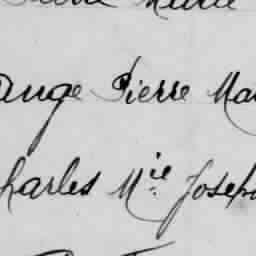 Ange Pierre Ma
harles M.ie Joseph